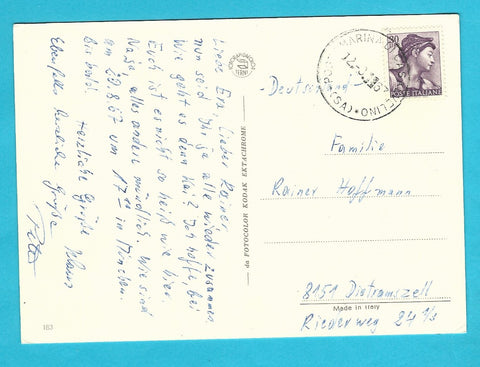 Liebe Eva, lieber Rainer,
nun seid Ihr ja alle wieder zusammen.
Wie geht es denn Kai? Ich hoffe, bei
Euch ist es nicht so heiß wie hier.
Na ja, alles andere mündlich. Wir sind
am 20.8.67 um 17 in München.
Bis bald! Herzliche Grüße Klaus
Ebenfalls herzliche Grüße
Peter
da FOTOCOLOR KODAK EKTACHROME
183
POSTE ITALIANE
Deutschland
Familie
Rainer Hoffmann
8151 Dietramszell
Made in Italy
Riederweg 24 1/2